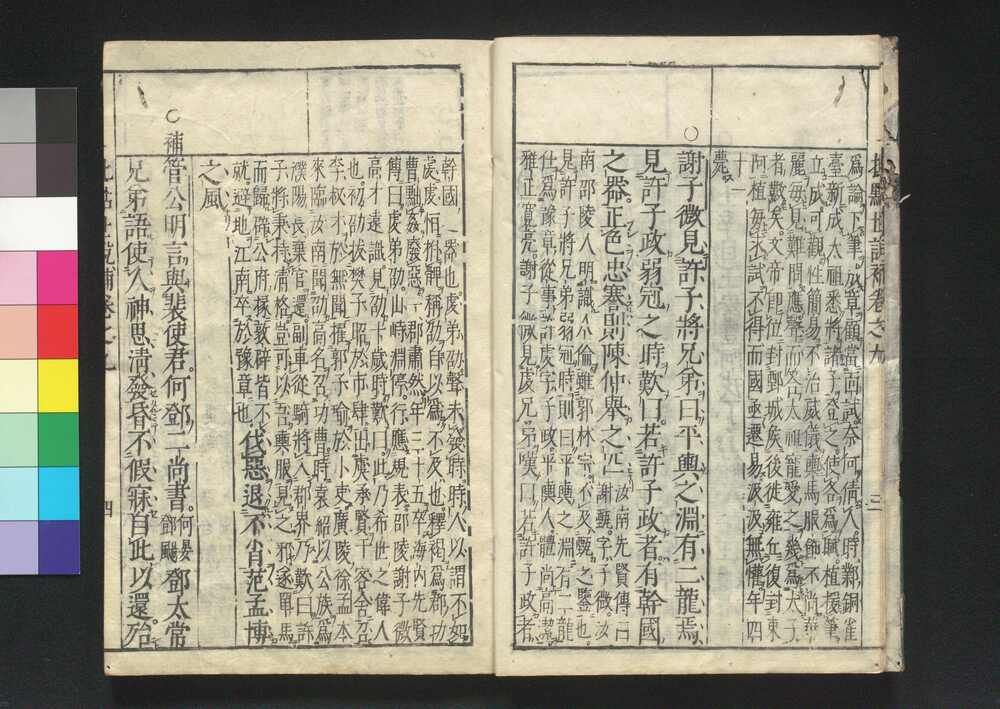 為論下筆成章顧當面試奈何倩人時鄴銅雀
臺新成太祖悉將諸子登之使各為賦植援筆
立成可觀性簡易不治威儀輿馬服飾不尚華
麗每見難問應聲而答太祖寵愛之幾為太子
者數矣文帝即位封鄄城侯後徙雍丘復封東
阿植每求試不得而國亟遷易汲汲無懽年四
十一
薨
謝子微見許子將兄弟曰平輿之淵有二龍焉
見許子政弱冠之時歎曰若許子政者有幹國
之器正色忠謇則陳仲舉之匹
汝南先賢傳曰
謝甄字子微汝
南邵陵人明識人倫雖郭林宗不及甄之鑒也
見許子將兄弟弱冠時則曰平輿之淵有二龍
仕為豫章從事許虔字子政平輿人體尚高潔
雅正寬亮謝子微見虔兄弟嘆曰若許子政者
幹國之器也虔弟劭聲未發時時人以謂不如
虔虔恒撫髀稱劭自以為不及也釋褐為郡功
曹黜姦廢惡一郡肅然年三十五卒海內先賢
傳曰虔弟劭山峙淵停行應規表邵陵謝子微
高才遠識見劭十歲時歎曰此乃希世之偉人
也初劭拔樊子昭於市肆出虞承賢于客舍召
李叔才於無聞擢郭子瑜於小吏廣陵徐孟本
來臨汝南聞劭高名召功曹時袁紹以公族為
濮陽長棄官還副車從騎將入郡界乃歎曰許
子將秉持清格豈可以吾輿服見之邪遂單馬
而歸辟公府掾敦辟皆不
就避地江南卒於豫章也
伐惡退不肖范孟博
之風
補管公明言與裴使君何鄧二尚書
何晏
鄧颺
鄧太常
兄弟語使人神思清發昏不假寐自此以還殆